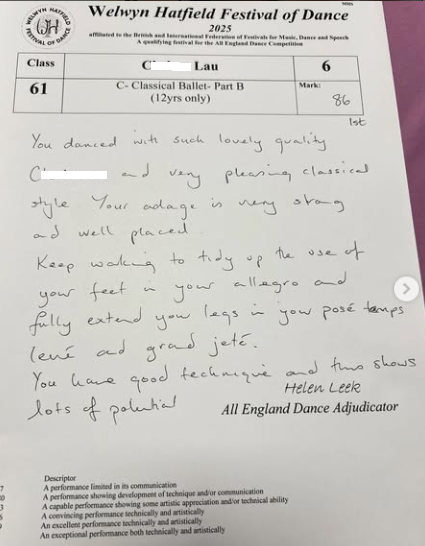 WELWYN HATFIELD
FESTIVAL OF DANCE
Welwyn Hatfield Festival of Dance
2025
affiliated to the British and International Federation of Festivals for Music, Dance and Speech
A qualifying festival for the All England Dance Competition
Class C Lau 6
61 C- Classical Ballet- Part B Mark:
(12yrs only) 86
1st
You danced with such lovely quality
C and very pleasing classical
style Your adage is very strong
and well placed.
Keep working to tidy up the use of
your feet in your allegro and
fully extend your legs in your posé temps
levé and grand jeté.
You have good technique and this shows
lots of potential
Helen Leek
All England Dance Adjudicator
Descriptor
A performance limited in its communication
A performance showing development of technique and/or communication
A capable performance showing some artistic appreciation and/or technical ability
A convincing performance technically and artistically
An excellent performance technically and artistically
An exceptional performance both technically and artistically